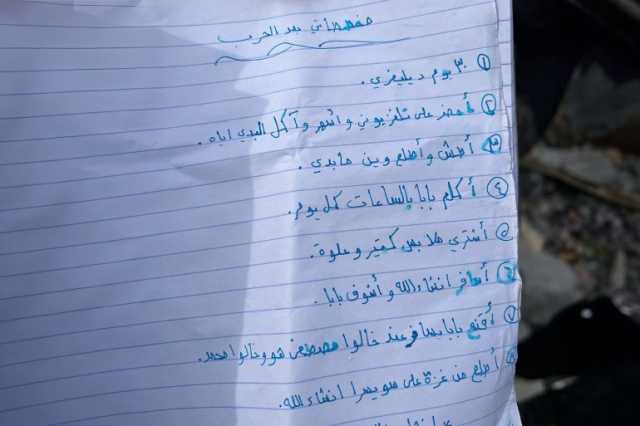 مخططاتي بعد الحرب
١ ٣٠ يوم ديليفري.
٢ أحضر على تلفزيوني واسهر وآكل البدي اياه.
٣ أطش وأطلع وين مابدي.
٤ أكلم بابا بالساعات كل يوم.
٥ أشتري ملابس كتير وحلوة.
٦ أسافر انشاء الله وأشوف بابا.
٧ أقنع بابا يسافر عند خالوا مصطفى هو وخالوا محمد.
٨ أطلع من غزة على سويسرا انشاء الله.